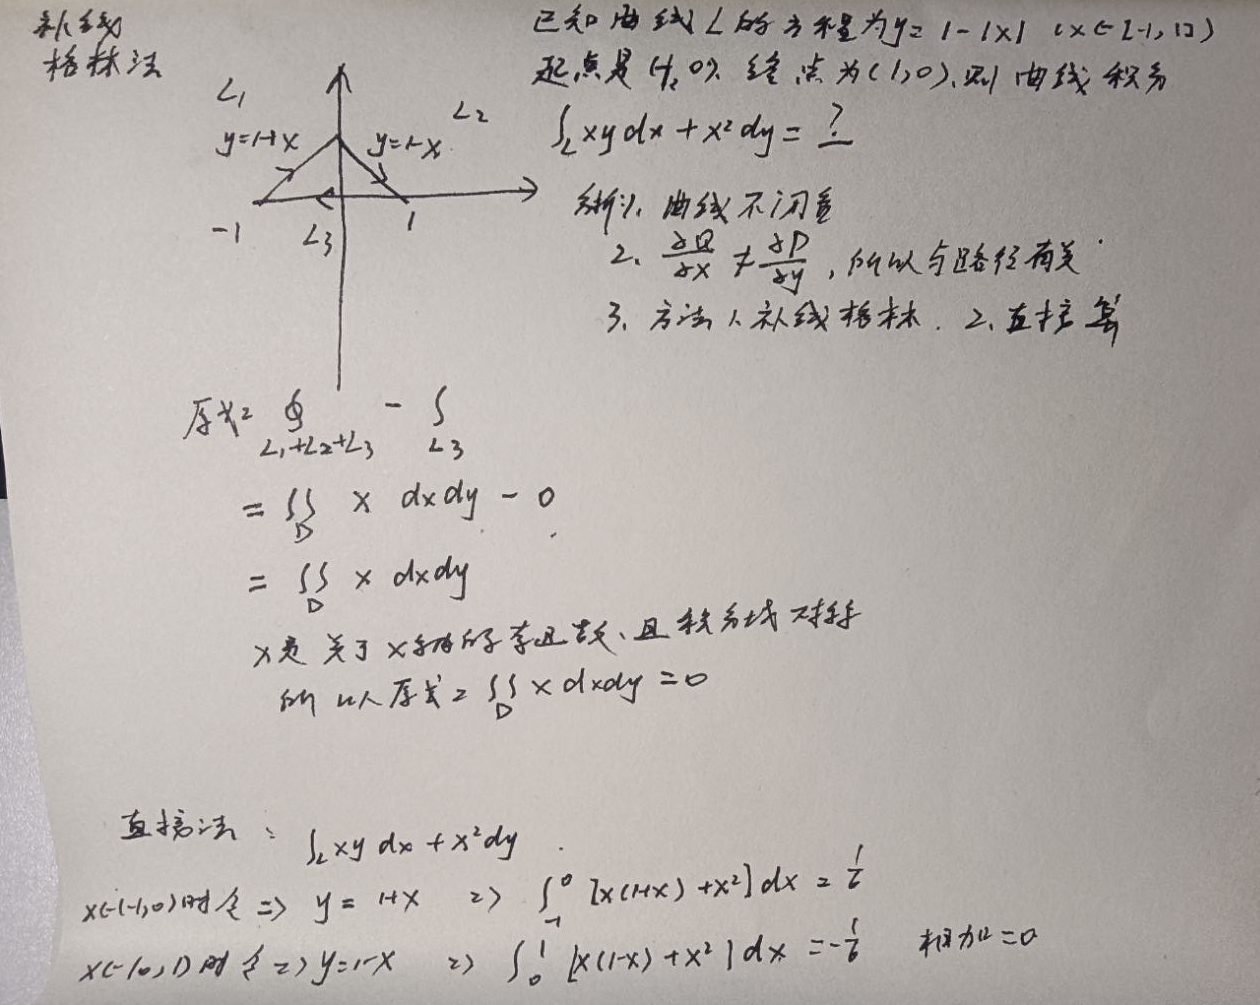 补线
格林法
已知曲线L的方程为y=1-|x| (x∈[-1,1])
起点是(-1,0), 终点为(1,0),则曲线积分
∫_L xydx+x²dy=?
L₁
y=1+x
L₂
y=1-x
-1
L₃
1
分析:1、曲线不闭合
2、∂Q/∂x ≠ ∂P/∂y, 所以与路径有关
3、方法1、补线格林. 2、直接算
原式= ∮_{L₁+L₂+L₃} - ∫_{L₃}
= ∬_D x dxdy - 0
= ∬_D x dxdy
x是关于x的奇函数、且积分域对称
所以原式=∬_D x dxdy=0
直接法: ∫_L xy dx+x²dy
x∈(-1,0)时 => y=1+x => ∫_{-1}^0 [x(1+x)+x²]dx=1/6
x∈(0,1)时 => y=1-x => ∫_0^1 [x(1-x)+x²]dx=-1/6 相加=0